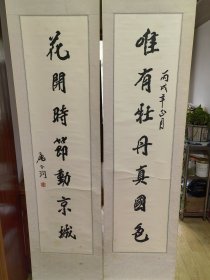 唯有牡丹真國色
丙戌年正月
花開時節動京城